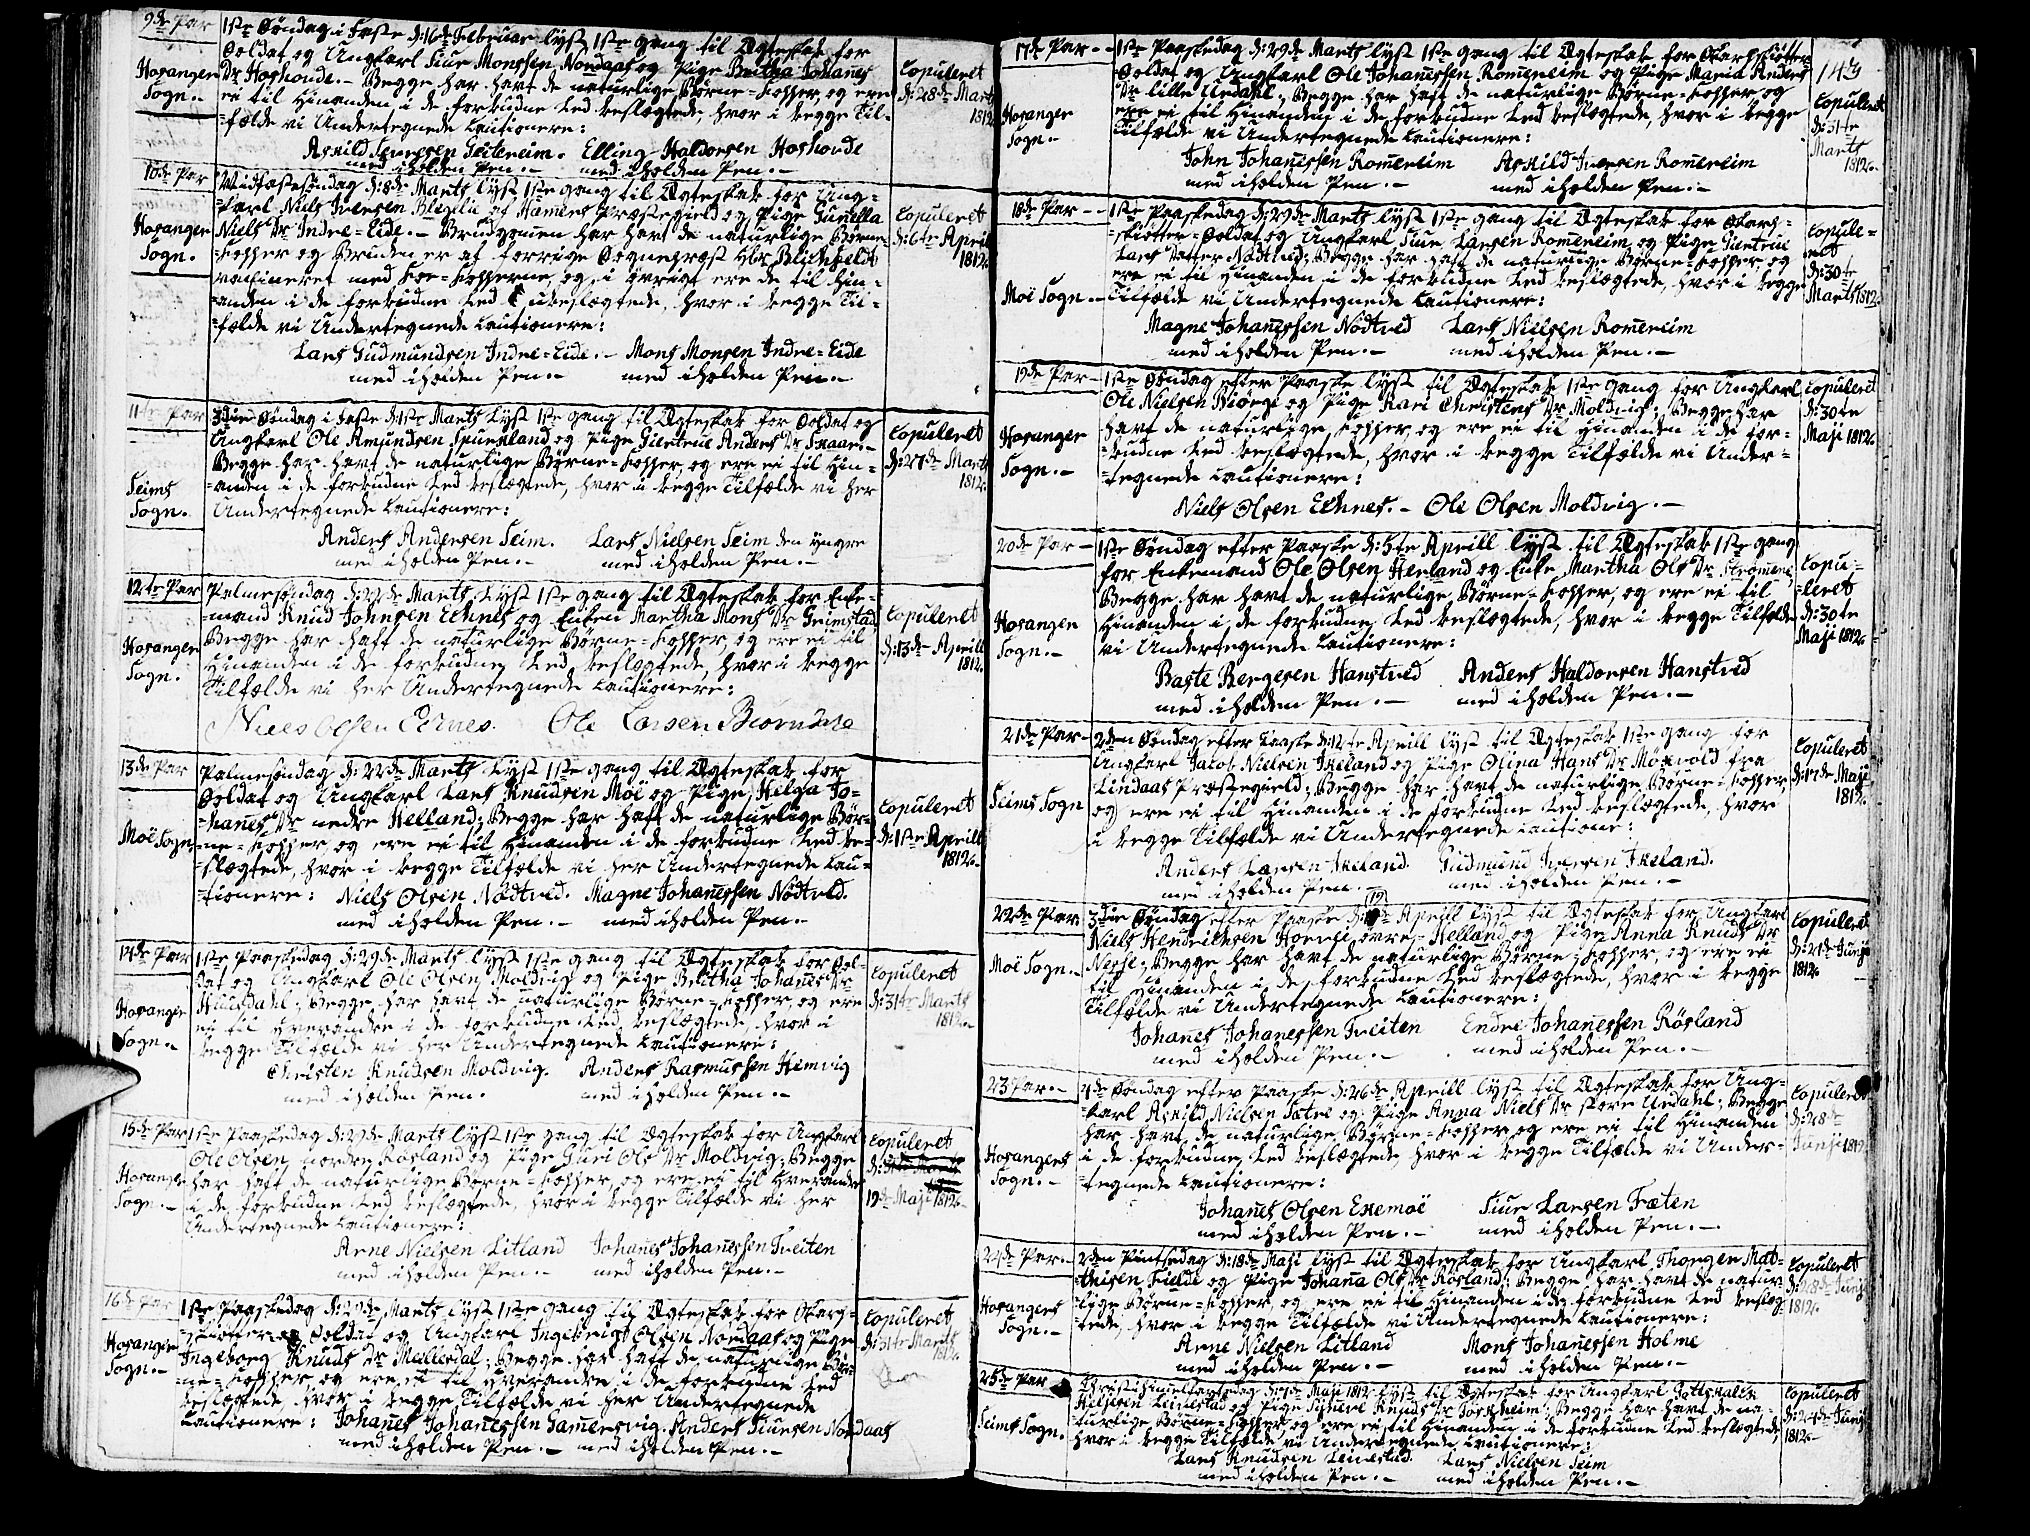 9de Par
Hosanger
Sogn.-
1ste Søndag i Faste d: 16de Februar lyst 1ste gang til Ægteskab for
Soldat og Ungkarl Siur Monssen Nordaas og Pige Britha Johanes
Dr Hoshovde.- Begge har havt de naturlige Børne=Kopper, og ere
ei til Hinanden i de forbudne Led beslægtede, hvor i begge Til-
=fælde vi Undertegnede Cautionere:
Askild Iversen Seitereim. Elling Haldorsen Hoshovde
med iholden Pen.- med iholden Pen.-
Copuleret
d: 28de Marts
1812.
10de Par
Hosanger
Sogn.
Midfastesøndag d: 8de Marts lyst 1ste gang til Ægteskab for Ung-
=karl Niels Iversen Blegilie af Hamers Præstegield og Pige Gunilla
Niels Dr Indre=Eide.- Brudgomen har havt de naturlige Børne-
=Kopper og Bruden er af forrige Sognepræst Hr Blichfeldt
vaccineret med Koe=Kopperne, og i øvrigt ere de til Hin-
=anden i de forbudne Led ubeslægtede, hvor i begge Til-
=fælde vi Undertegnede Cautionere:
Lars Gudmundsen Indre=Eide.- Mons Monsen Indre=Eide
med iholden Pen.- med iholden Pen.-
Copuleret
d: 6te April
1812.
11te Par
Seims
Sogn.
3die Søndag i Faste d: 1ste Marts lyst 1ste gang til Ægteskab for Soldat og
Ungkarl Ole Amundsen Spurkland og Pige Giertrue Anders Dr Skaar.-
Begge har havt de naturlige Børne=Kopper, og ere ei til Hin-
=anden i de forbudne Led beslægtede, hvor i begge Tilfælde vi her
Undertegnede Cautionere:
Anders Andersen Seim. Lars Nielsen Seim den yngre
med iholden Pen.- med iholden Pen.-
Copuleret
d: 27de Marts
1812.
12te Par
Hosanger
Sogn.
Palmesøndag d: 22de Marts lyst 1ste gang til Ægteskab for Enke-
=mand Knud Johnsen Echnes og Enken Martha Mons Dr Grimstad
Begge har haft de naturlige Børne=Kopper, og ere ei til
Hinanden i de forbudne Led beslægtede, hvor i begge
Tilfælde vi her Undertegnede Cautionere:
Niels Olsen Eernes. Ole Larsen Biørndale
Copuleret
d: 13de Aprill
1812.
13de Par
Moe Sogn
Palmesøndag d: 22de Marts lyst 1ste gang til Ægteskab for
Soldat og Ungkarl Lars Knudsen Moe og Pige Helga Jo-
=hanes Dr nedre Helland; Begge har haft de naturlige Bør-
=ne=Kopper, og ere ei til Hinanden i de forbudne Led be-
=slægtede, hvor i begge Tilfælde vi her Undertegnede Cau-
=tionere: Niels Olsen Nødtved. Magne Johanessen Nødtved.
med iholden Pen.- med iholden Pen.-
Copuleret
d: 1ste Aprill
1812.
14de Par
Hosanger
Sogn.
1ste Paaskedag d: 29de Marts lyst 1ste gang til Ægteskab for Sol-
dat og Ungkarl Ole Olsen Moldvig og Pige Britha Johanes Dr
Huusdahl; Begge har havt de naturlige Børne=Kopper og ere
ei til hverandre i de forbudne Led beslægtede, hvor i
begge Tilfælde vi her Undertegnede Cautionere:
Christen Knudsen Moldvig. Anders Rasmussen Himvig
med iholden Pen. med iholden Pen.-
Copuleret
d: 31te Marts
1812.
15de Par
Hosanger
Sogn.-
1ste Paaskedag d: 29de Marts lyst 1ste gang til Ægteskab for Ungkarl
Ole Olsen nordre Røsland og Pige Guri Ols Dr Moldvig; Begge
har haft de naturlige Børne=Kopper, og ere ei til hverandre
i de forbudne Led beslægtede, hvor i begge Tilfælde vi her
Undertegnede Cautionere:
Arne Nielsen Litland Johanes Johanessen Tveiten
med iholden Pen.- med iholden Pen.-
Copuleret
19de Maji 1812.
16de Par
Hosanger
Sogn.-
1ste Paaskedag d: 29de Marts lyst 1ste gang til Ægteskab for Skarp-
=skiøtter Soldat og Ungkarl Ingebrigt Olsen Nordaas og Pige
Ingeborg Knuds Dr Mullerdal; Begge har haft de naturlige Bør-
=ne=Kopper, og ere ei til hverandre i de forbudne Led
beslægtede, hvor i begge Tilfælde vi her Undertegnede
Cautionere: Johanes Johanessen Samersvig. Anders Siursen Nordaas
med iholden Pen.- med iholden Pen.-
Copuleret
d: 31te Marts
1812.
17de Par-
Hosanger
Sogn.-
1ste Paaskedag d: 29de Marts lyst 1ste gang til Ægteskab for Skarpskiøtter
Soldat og Ungkarl Ole Johanessen Romereim og Pige Maria Anders
Dr lille Urdahl; Begge har haft de naturlige Børne=Kopper, og
ere ei til Hinanden i de forbudne Led beslægtede, hvor i begge
Tilfælde vi Undertegnede Cautionere:
John Johanessen Romereim Askild Iversen Romereim
med iholden Pen.- med iholden Pen.-
Copuleret
d: 31te
Marts
1812.
18de Par-
Moe Sogn.-
1ste Paaskedag d: 29de Marts lyst 1ste gang til Ægteskab for Skarp-
=skiøtter=Soldat og Ungkarl Siur Larsen Romereim og Pige Giertrue
Lars Datter Nødtved; Begge har haft de naturlige Børne=Kopper, og
ere ei til Hinanden i de forbudne Led beslægtede, hvor i begge
Tilfælde vi Undertegnede Cautionere:
Magne Johanessen Nødtved Lars Nielsen Romereim
med iholden Pen.- med iholden Pen.-
Copule=
ret
d: 30te
Marts 1812.
19de Par-
Hosanger
Sogn.-
1ste Søndag efter Paaske lyst til Ægteskab 1ste gang for Ungkarl
Ole Nielsen Biørge og Pige Kari Christens Dr Moldvig; Begge har
havt de naturlige Kopper, og ere ei til Hinanden i de for-
=budne Led beslægtede, hvor i begge Tilfælde vi Under-
=tegnede Cautionere:
Niels Olsen Echnes.- Ole Olsen Moldvig.-
Copuleret
d: 30te
Maji 1812.
20de Par-
Hosanger
Sogn.-
1ste Søndag efter Paaske d: 5te Aprill lyst til Ægteskab 1ste gang
for Enkemand Ole Olsen Herland og Enke Martha Ols Dr Strømene
Begge har havt de naturlige Børne=Kopper, og ere ei til
Hinanden i de forbudne Led beslægtede, hvor i begge Tilfælde
vi Undertegnede Cautionere:
Baste Bergesen Hanstved Anders Haldorsen Hanstved
med iholden Pen.- med iholden Pen.-
Copu-
=leret
d: 30te
Maji 1812.
21de Par-
Seims Sogn
2den Søndag efter Paaske d: 12te Aprill lyst til Ægteskab 1ste gang for
Ungkarl Jacob Nielsen Ikeland og Pige Olina Hans Dr Mørkvold fra
Lindaas Præstegield; Begge har havt de naturlige Børne=Kopper,
og ere ei til Hinanden i de forbudne Led beslægtede, hvor
i begge Tilfælde vi Undertegnede Cautione:
Anders Larsen Ikeland. Gudmund Iversen Ikeland.
med iholden Pen.- med iholden Pen.-
Copuleret
d: 17de Maji
1812.
22de Par
Moe Sogn.-
3die Søndag efter Paaske d: 19de Aprill lyst til Ægteskab for Ungkarl
Niels Hendrichsen øvre=Helland og Pige Anna Knuds Dr
Nesse; Begge har havt de naturlige Børne=Kopper, og ere ei
til Hinanden i de forbudne Led beslægtede, hvor i begge
Tilfælde vi Undertegnede Cautionere:
Johanes Johanessen Tveiten Endre Johanessen Røsland
med iholden Pen.- med iholden Pen.-
Copuleret
d: 21de Junji
1812.
23 Par.-
Hosangers
Sogn.-
4de Søndag efter Paaske d: 26de Aprill lyst til Ægteskab for Ung-
=karl Askild Nielsen Sætre og Pige Anna Niels Dr store Urdahl; Begge
har havt de naturlige Børne=Kopper og ere ei til Hinanden
i de forbudne Led beslægtede, hvor i begge Tilfælde vi Under-
=tegnede Cautionere:
Johanes Olsen Exemoe Siur Larsen Træten
med iholden Pen.- med iholden Pen.-
Copuleret
d: 28de
Junji 1812.
24de Par.-
Hosangers
Sogn.-
2den Pintsedag d: 18de Maji lyst til Ægteskab for Ungkarl Thorger Mat-
=thisen Fielde og Pige Johana Ols Dr Røsland; Begge har havt de natur-
=lige Børne=Kopper, og ere ei til Hinanden i de forbudne Led beslæg-
=tede, hvor i begge Tilfælde vi Undertegnede Cautionere:
Arne Nielsen Litland Mons Johanessen Holme
med iholden Pen.- med iholden Pen.-
Copuleret
d: 28de Junji
1812.
25de Par
Seims Sogn.
Christi Himmelfartsdag d: 7de Maji 1812 lyst til Ægteskab for Ungkarl Gottskalck
Helgesen Leimstad og Pige Synneve Knuds Dr Torkheim; Begge har havt de na-
=turlige Børne=Kopper, og ere ei til Hinanden i de forbudne Led beslægtede,
hvor i begge Tilfælde vi Undertegnede Cautionere:
Lars Knudsen Leimstad. Lars Nielsen Seim
med iholden Pen.- med iholden Pen.-
Copuleret
d: 24de Junji
1812.